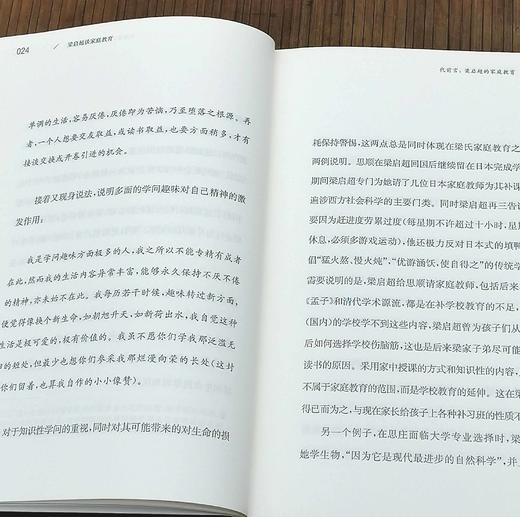 024
/
梁启超谈家庭教育
单调的生活，容易厌倦，厌倦即为苦恼，乃至堕落之根源。再
者，一个人想要交友取益，或读书取益，也要方面稍多，才有
接谈交换或开卷引进的机会。
接着又现身说法，说明多面的学问趣味对自己精神的激
发作用：
我是学问趣味方面极多的人，我之所以不能专精有成者
在此，然而我的生活内容异常丰富，能够永久保持不厌不倦
的精神，亦未始不在此。我每历若干时候，趣味转过新方面，
便觉得像换个新生命，如朝旭升天，如新荷出水，我自觉这种
生活是极可爱的，极有价值的。我虽不愿你们学我那泛滥无
归的短处，但最少也想你们参采我那烂漫向荣的长处（这封
你们留着，也算我自作的小小像赞）。
对于知识性学问的重视，同时对其可能带来的对生命的损
代前言：梁启超的家庭教育
耗保持警惕，这两点总是同时体现在梁氏家庭教育之
两例说明。思顺在梁启超回国后继续留在日本完成学
期间梁启超专门为她请了几位日本家庭教师为其补课
遍涉西方社会科学的主要门类。同时梁启超再三告诫
要因为赶进度劳累过度（每星期不许超过十小时，星期
休息，必须多游戏运动），他还极力反对日本式的填鸭
倡“猛火熬，慢火炖”、“优游涵饫，使自得之”的传统学
需要说明的是，梁启超给思顺请家庭教师，包括后来
《孟子》和清代学术源流，都是在补学校教育的不足，
（国内）的学校学不到这些内容，梁启超曾为孩子们从
后如何选择学校伤脑筋，这也是后来梁家子弟尽可能
读书的原因。采用家中授课的方式和知识性的内容，
不属于家庭教育的范围，而是学校教育的延伸。这在梁
得已而为之，与现在家长给孩子上各种补习班的性质不
另一个例子，在思庄面临大学专业选择时，梁
她学生物，“因为它是现代最进步的自然科学”，并